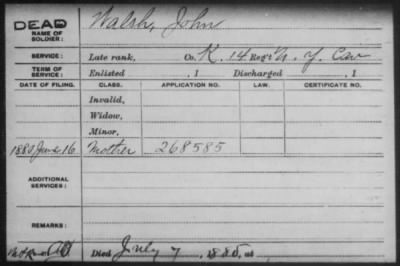 DEAD
NAME OF SOLDIER: Walsh, John
SERVICE: Late rank, Co. K. 14 Reg't N. Y. Cav
TERM OF SERVICE: Enlisted , 1 Discharged , 1
DATE OF FILING. CLASS. APPLICATION NO. LAW. CERTIFICATE NO.
Invalid,
Widow,
Minor,
1880 June 16 Mother 268585
ADDITIONAL SERVICES:
REMARKS:
Died July 7, 1885, at